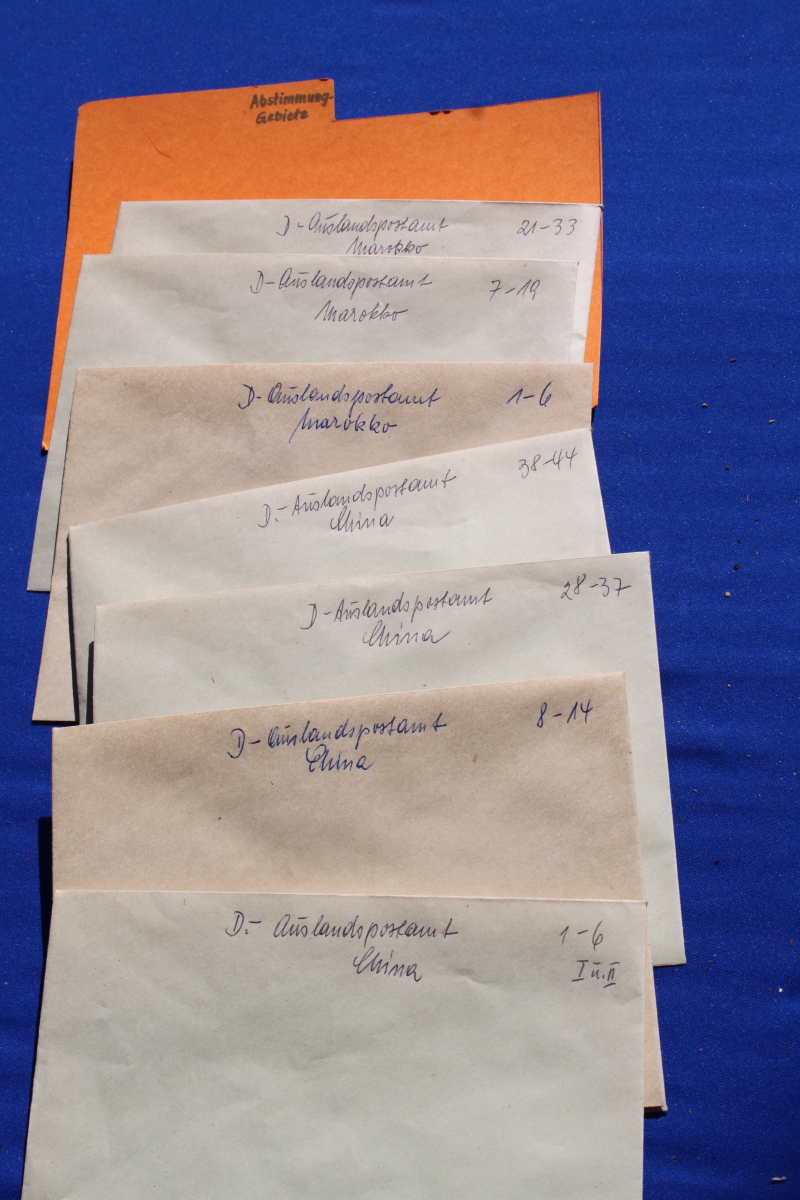 Abstimmung-
Gebiete
D-Auslandspostamt 21-33
Marokko
D-Auslandspostamt 7-19
Marokko
D-Auslandspostamt 1-6
Marokko
D.-Auslandspostamt 38-44
China
D-Auslandspostamt 28-37
China
D-Auslandspostamt 8-14
China
D.- Auslandspostamt 1-6
China I u. II